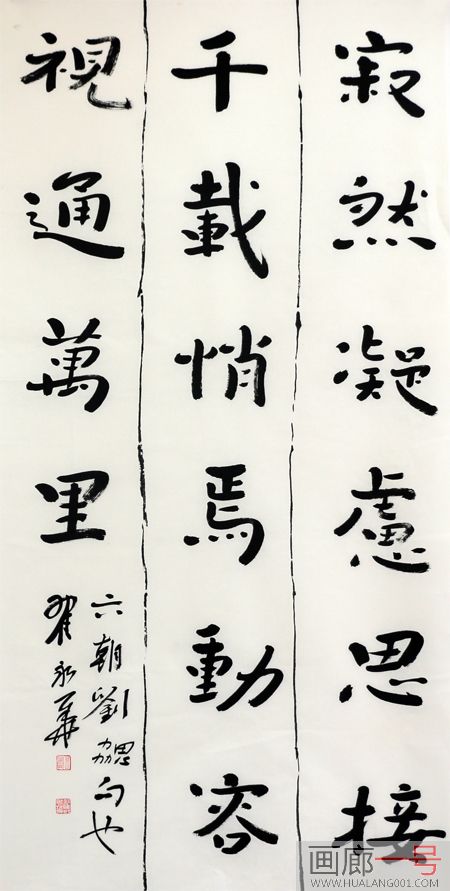 寂然凝慮思接
千載悄焉動容
視通萬里
六朝劉勰句也
翟永華
画廊一号
WWW.HUALANG001.COM